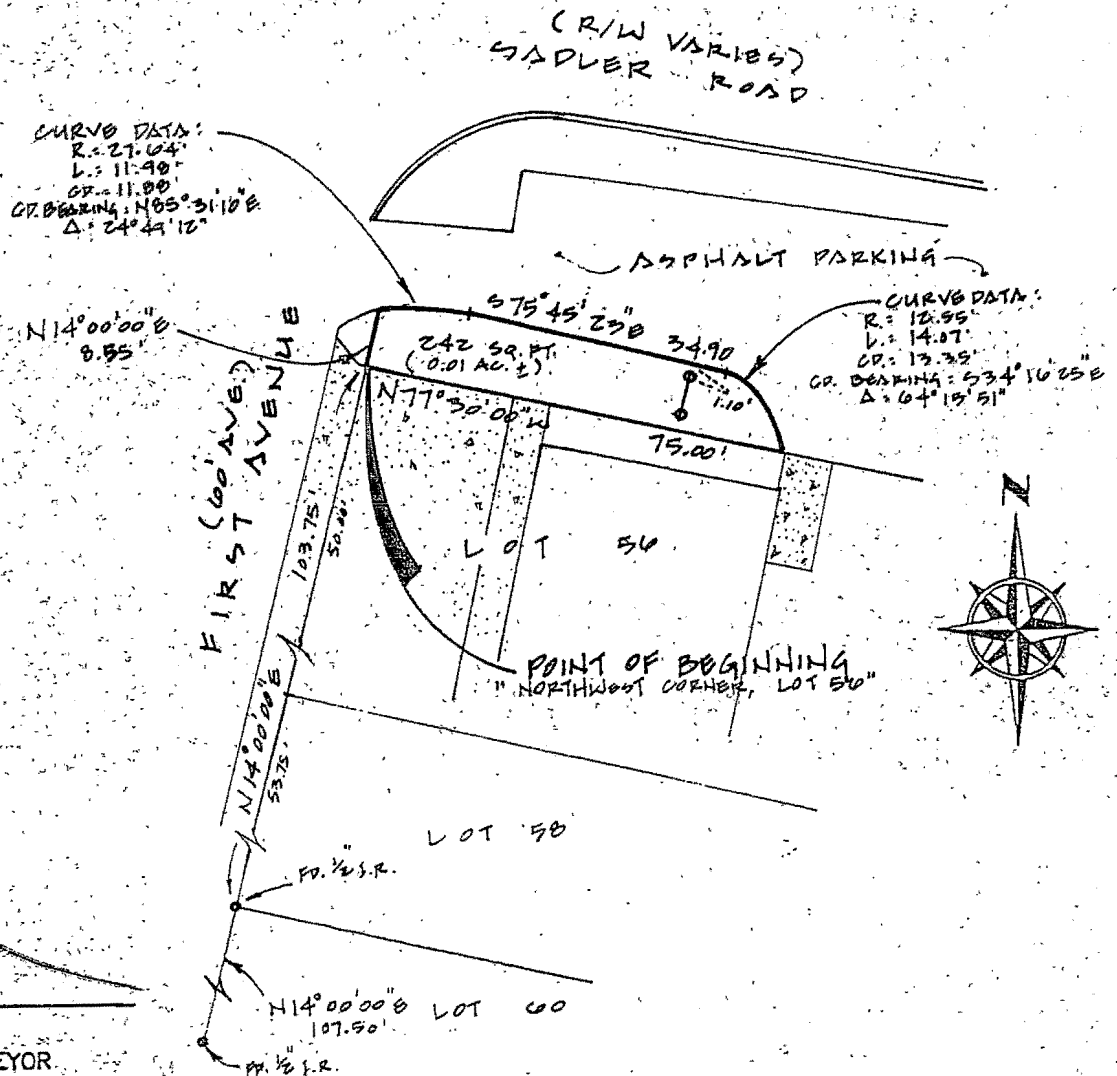 (R/W VARIES)
SADLER ROAD
CURVE DATA:
R.= 27.64'
L.= 11.98'
CD.= 11.88'
CD. BEARING: N85°31'18"E
Δ= 24°49'12"
ASPHALT PARKING
CURVE DATA:
R.= 12.55'
L.= 14.07'
CD.= 13.35'
CD. BEARING: S34°16'25"E
Δ= 64°15'51"
N14°00'00"E
8.55'
S75°45'23"E
34.90
242 SQ. FT.
(0.01 AC.±)
1.10'
N77°30'00"W
75.00'
FIRST AVENUE
(60' AVE.)
103.75'
50.00'
LOT 56
N
POINT OF BEGINNING
"NORTHWEST CORNER, LOT 56"
N14°00'00"E
53.75'
LOT 58
FD. 1/2" I.R.
N14°00'00"E
107.50'
LOT 60
FD. 1/2" I.R.
EYOR